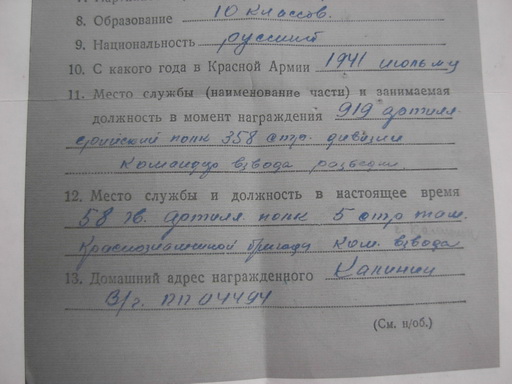 8. Образование 10 классов.
9. Национальность русский
10. С какого года в Красной Армии 1941 июль
11. Место службы (наименование части) и занимаемая
должность в момент награждения 919 артилл-
ерийский полк 358 стр. дивизии
командир взвода разведки
12. Место службы и должность в настоящее время
58 артилл полк 5 стр
Краснознаменной бригады ком. взвода
13. Домашний адрес награжденного Калинин
В/ч. ПП 04494
(См. н/об.)